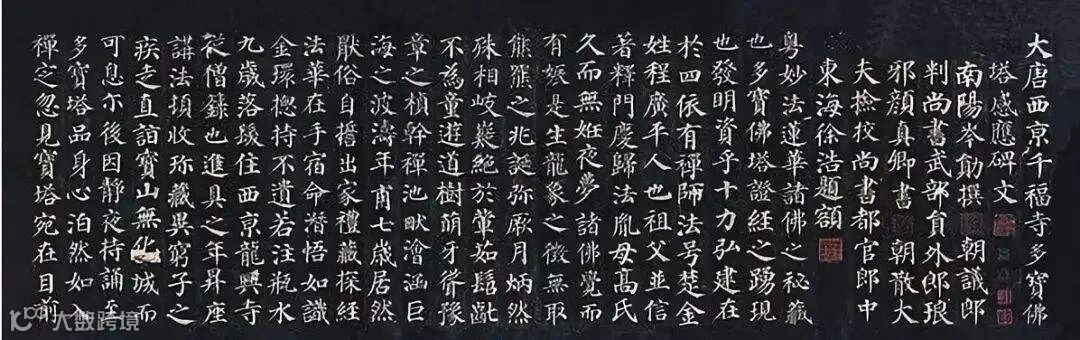 大唐西京千福寺多寶佛
塔感應碑文
南陽岑勛撰 朝議郎
判尚書武部員外郎琅
邪顏真卿書 朝散大
夫撿挍尚書都官郎中
東海徐浩題額
粵妙法蓮華諸佛之秘藏
也多寶佛塔證經之踴現
也發明資乎十力弘建在
於四依有禪師法号楚金
姓程廣平人也祖父並信
著釋門慶歸法胤母高氏
久而無姙夜夢諸佛覺而
有娠是生龍象之徵無取
熊羆之兆誕弥厥月炳然
殊相岐嶷絕於葷茹髫齔
不為童遊道樹萌牙聳豫
章之楨幹禪池畎澮涵巨
海之波濤年甫七歲居然
猒俗自誓出家禮藏探經
法華在手宿命潛悟如識
金環揔持不遺若注瓶水
九歲落髮住西京龍興寺
從僧籙也進具之年昇座
講法頓收弥藏異窮子之
疾走直詣寶山無化城而
可息尒後因靜夜持誦至
多寶塔品身心泊然如入
禪定忽見寶塔宛在目前
大数跨境